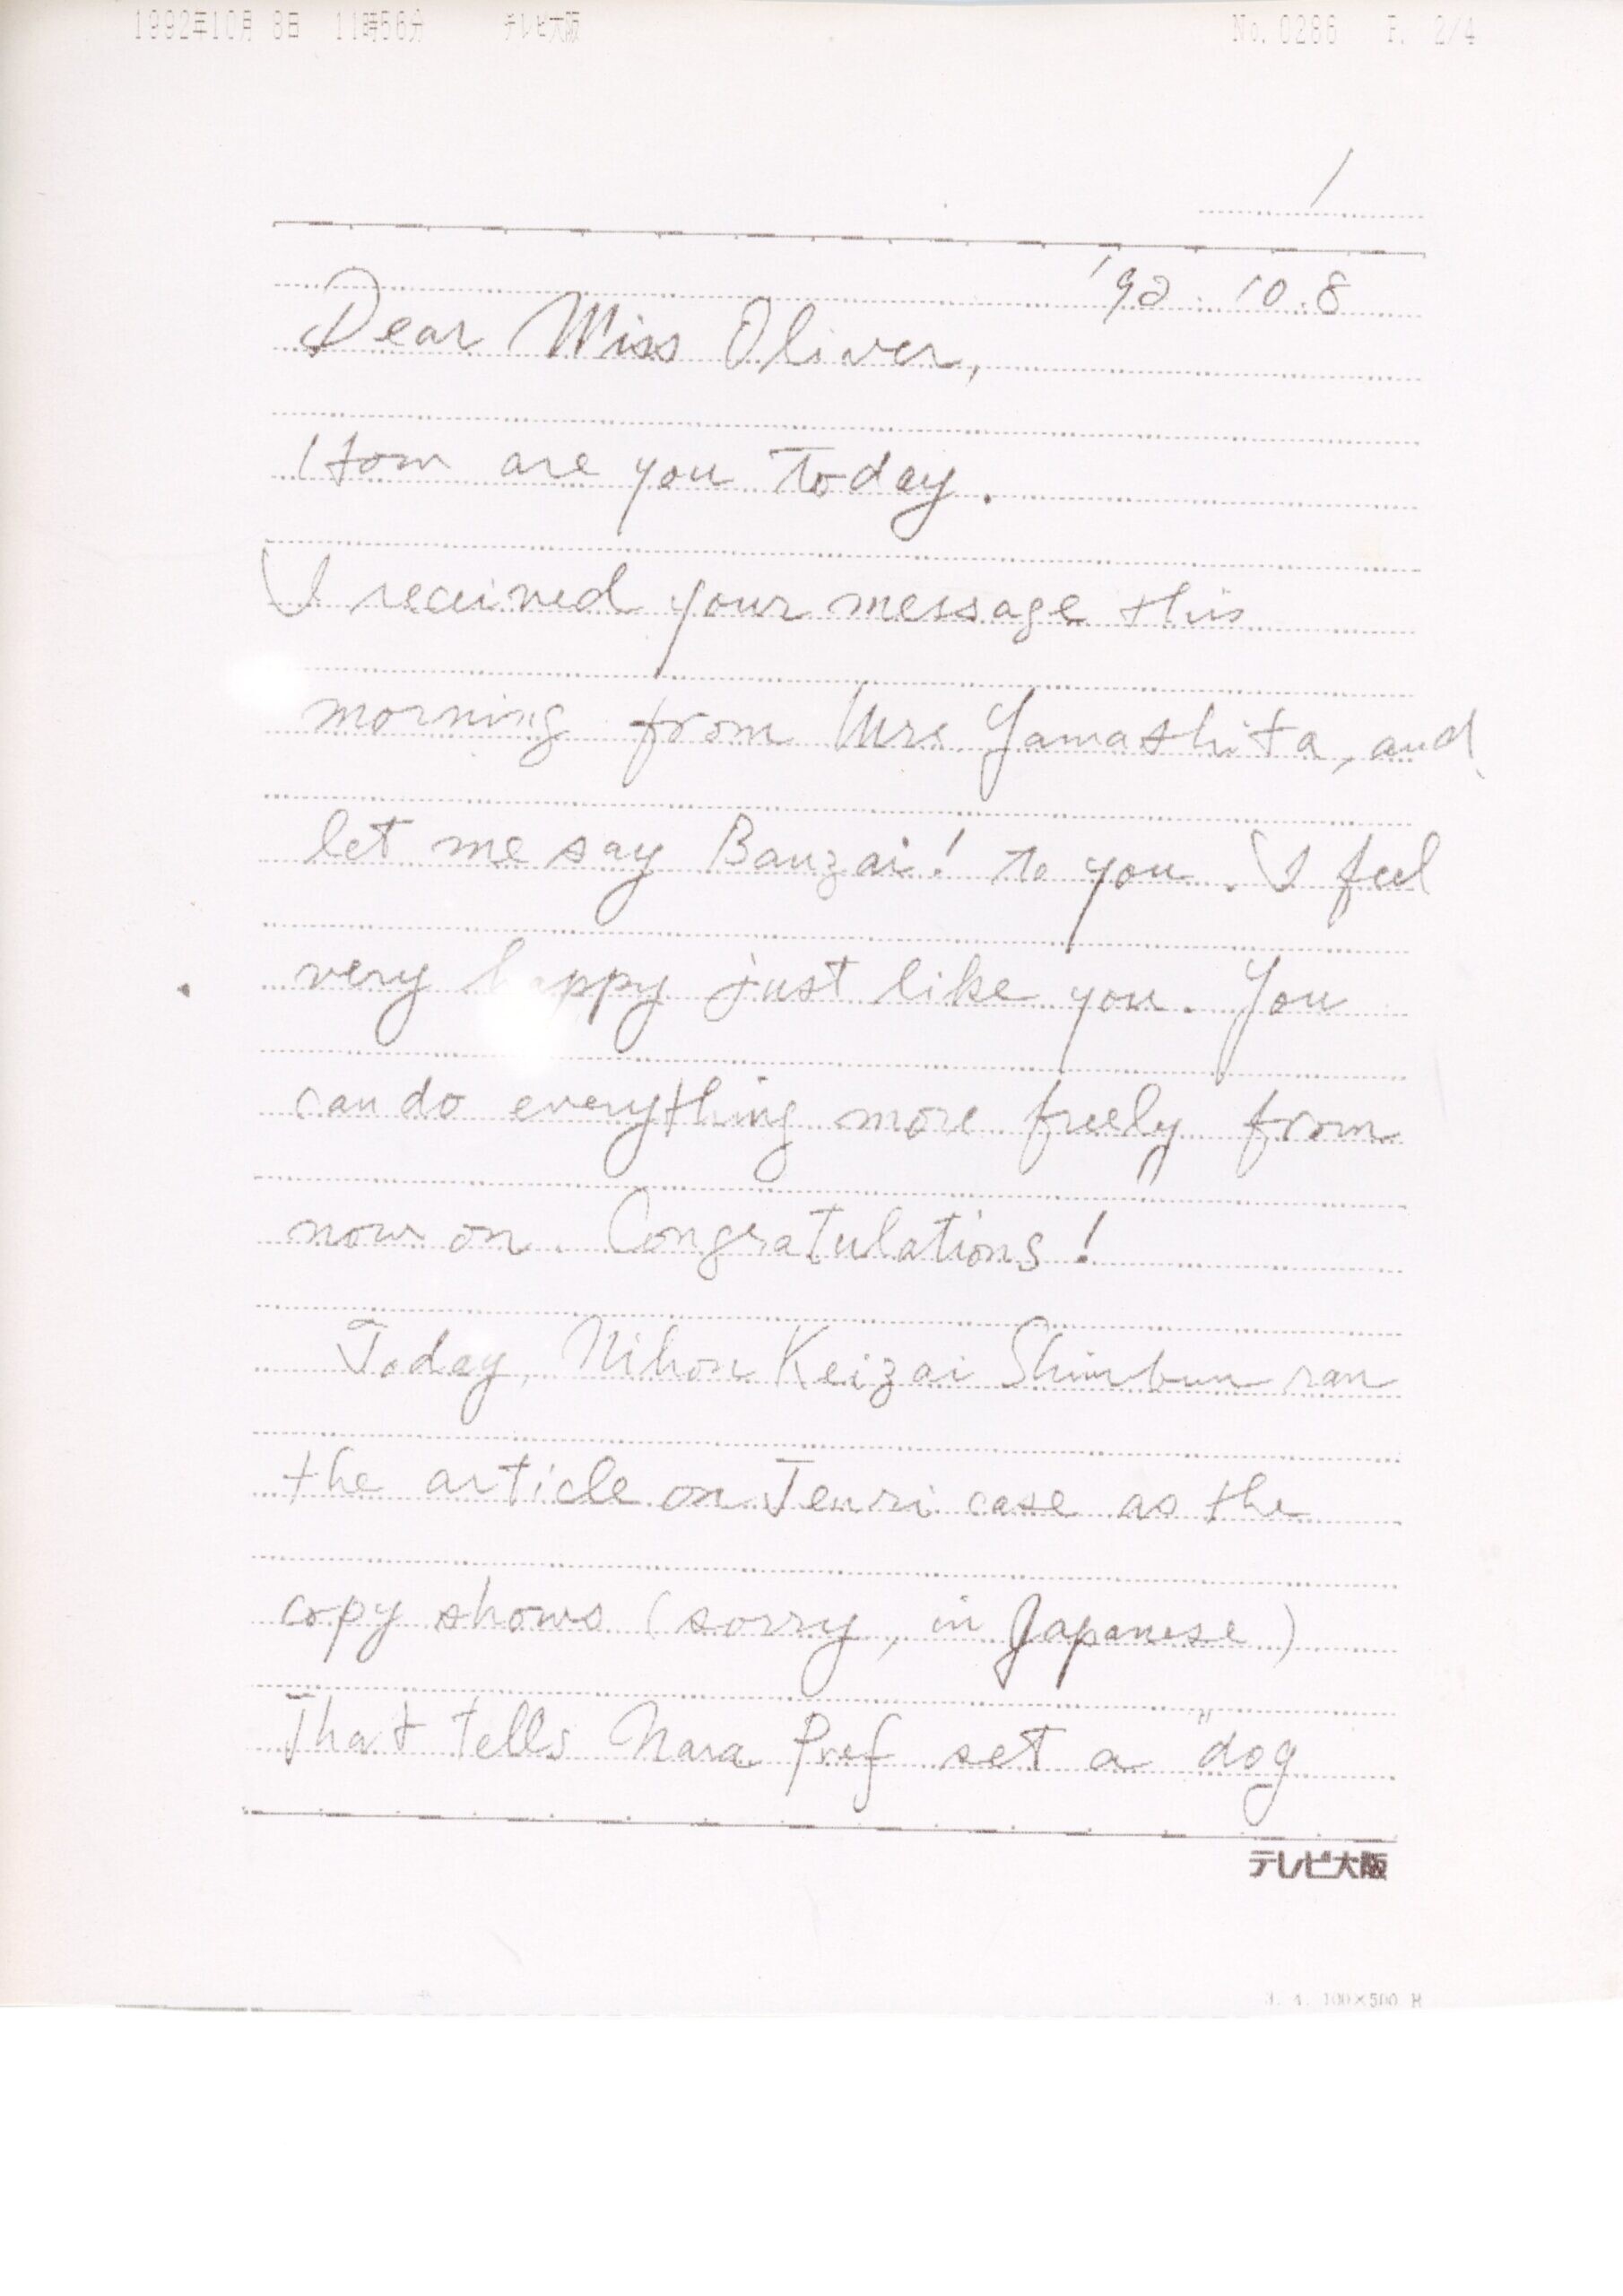 1992年10月 8日 11時56分 テレビ大阪 No.0286 P. 2/4
1
'92.10.8
Dear Miss Oliver,
How are you today.
I received your message this
morning from Mrs Yamashita, and
let me say Banzai! to you. I feel
very happy just like you. You
can do everything more freely from
now on. Congratulations!
Today, Nihon Keizai Shimbun ran
the article on Tenri case as the
copy shows (sorry, in Japanese)
That tells Nara Pref set a "dog
テレビ大阪